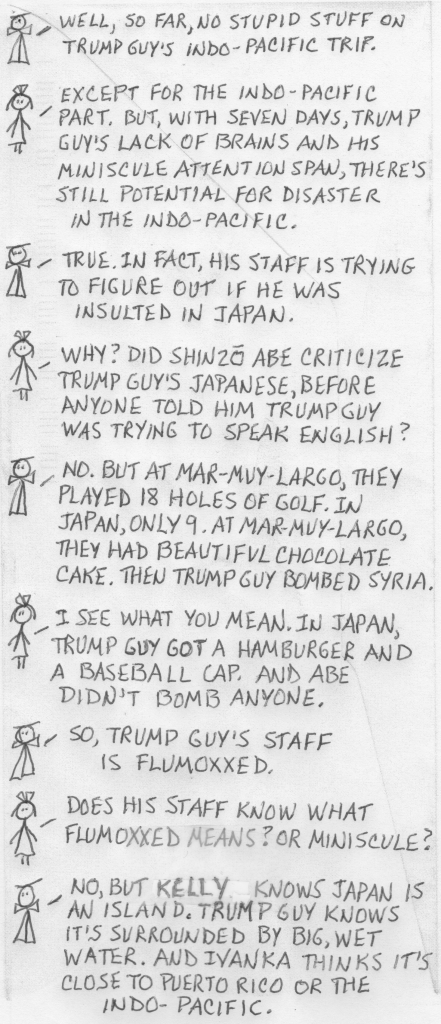 WELL, SO FAR, NO STUPID STUFF ON
TRUMP GUY'S INDO-PACIFIC TRIP.
EXCEPT FOR THE INDO-PACIFIC
PART. BUT, WITH SEVEN DAYS, TRUMP
GUY'S LACK OF BRAINS AND HIS
MINISCULE ATTENTION SPAN, THERE'S
STILL POTENTIAL FOR DISASTER
IN THE INDO-PACIFIC.
TRUE. IN FACT, HIS STAFF IS TRYING
TO FIGURE OUT IF HE WAS
INSULTED IN JAPAN.
WHY? DID SHINZŌ ABE CRITICIZE
TRUMP GUY'S JAPANESE, BEFORE
ANYONE TOLD HIM TRUMP GUY
WAS TRYING TO SPEAK ENGLISH?
NO. BUT AT MAR-MUY-LARGO, THEY
PLAYED 18 HOLES OF GOLF. IN
JAPAN, ONLY 9. AT MAR-MUY-LARGO,
THEY HAD BEAUTIFUL CHOCOLATE
CAKE. THEN TRUMP GUY BOMBED SYRIA.
I SEE WHAT YOU MEAN. IN JAPAN,
TRUMP GUY GOT A HAMBURGER AND
A BASEBALL CAP. AND ABE
DIDN'T BOMB ANYONE.
SO, TRUMP GUY'S STAFF
IS FLUMOXXED.
DOES HIS STAFF KNOW WHAT
FLUMOXXED MEANS? OR MINISCULE?
NO, BUT KELLY KNOWS JAPAN IS
AN ISLAND. TRUMP GUY KNOWS
IT'S SURROUNDED BY BIG, WET
WATER. AND IVANKA THINKS IT'S
CLOSE TO PUERTO RICO OR THE
INDO-PACIFIC.